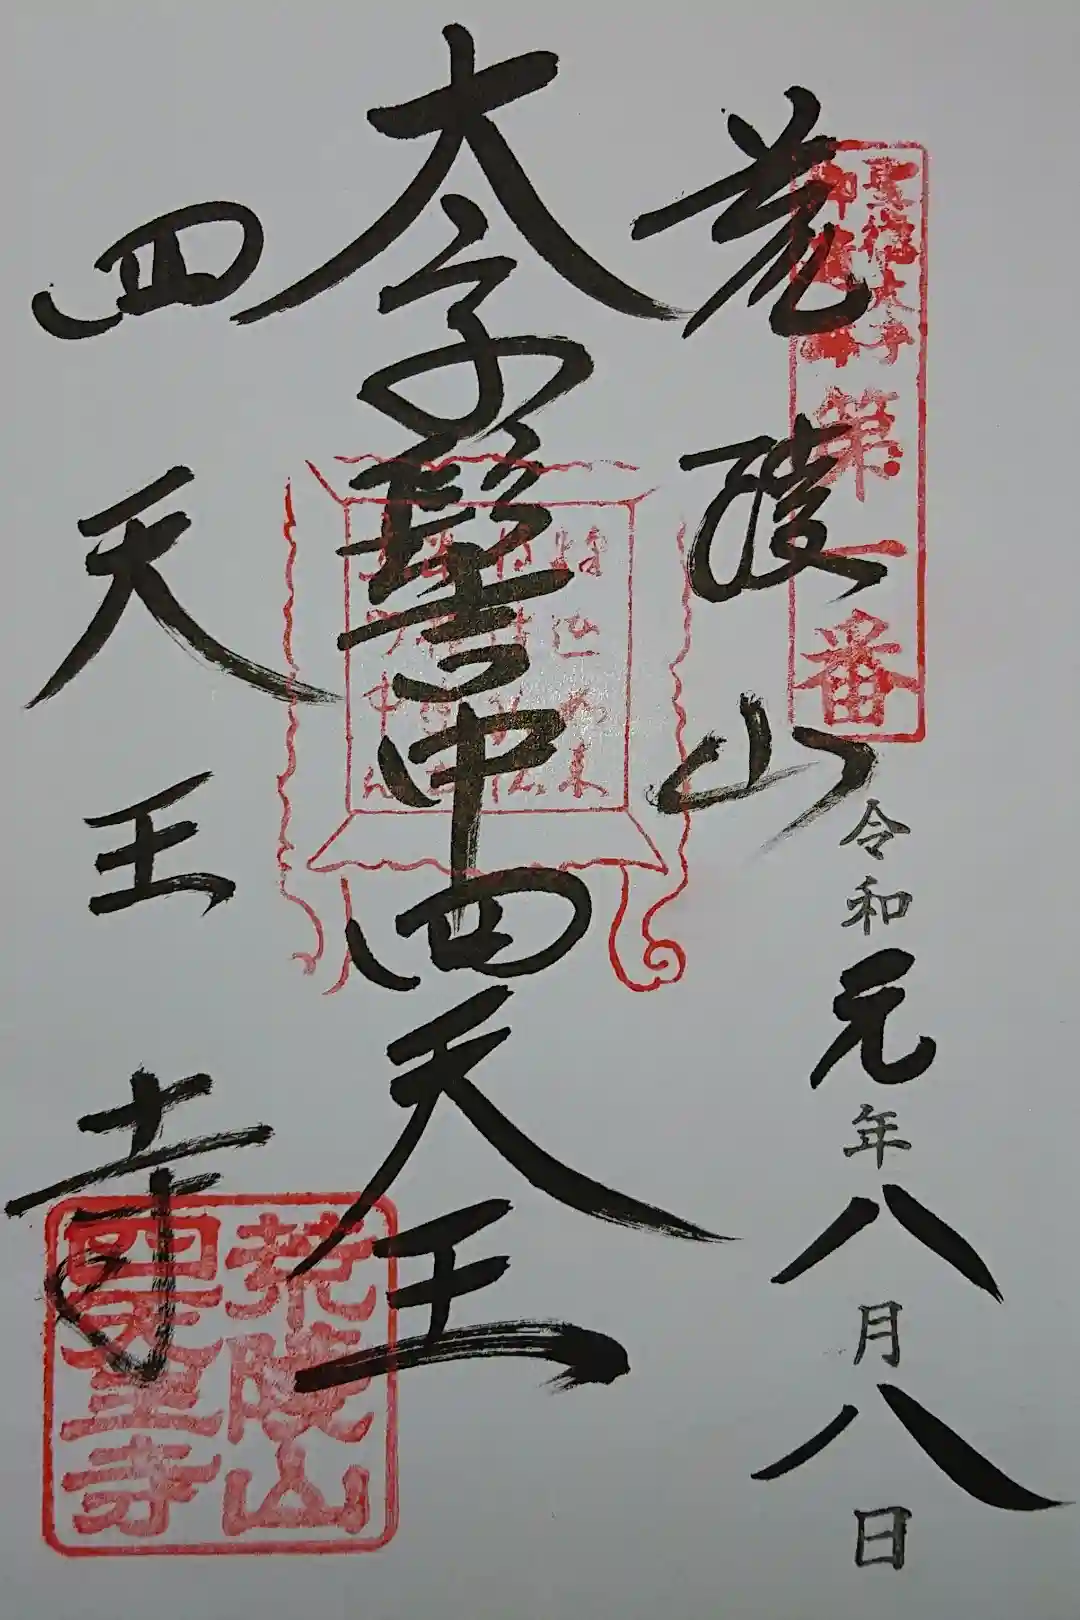 聖徳太子
御遺跡
第一番
荒陵山
令和元年八月八日
太子髻中四天王
四天王寺
荒陵山
四天王寺